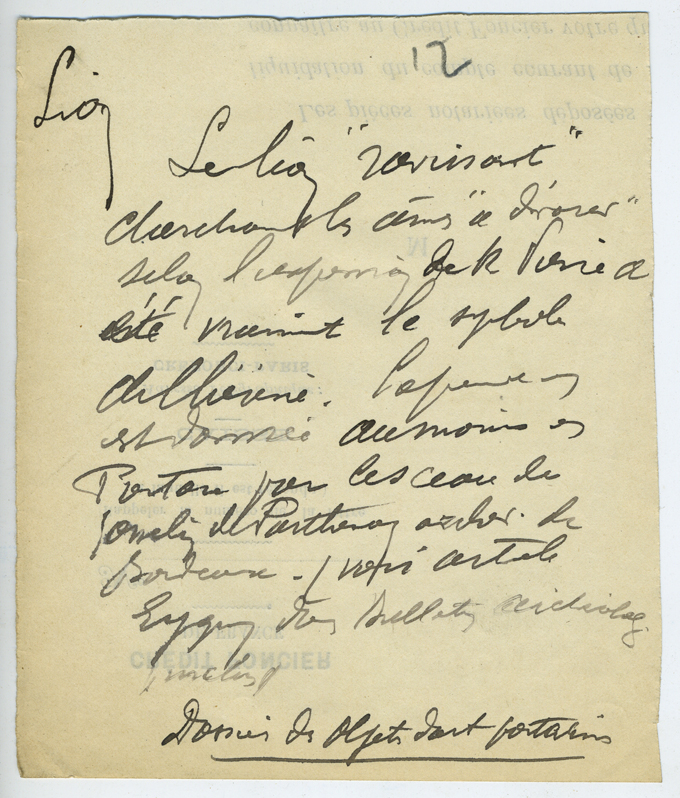 connaître au Crédit Foncier votre
12
liquidation du compte courant de
Lion
Les pièces notariées déposées
Le lion "ravissant"
cherchant les âmes "à dévorer"
selon l'expression de St Pierre a
été vraiment le symbole
de l'hérésie. La preuve en
est donnée au moins en
Poitou par le sceau de
Josselin de Parthenay archev. de
Bordeaux. (voir article
Eygun dans Bulletin archéolog.
DE FRANCE
CRÉDIT FONCIER
Dossier des objets d'art poitevins